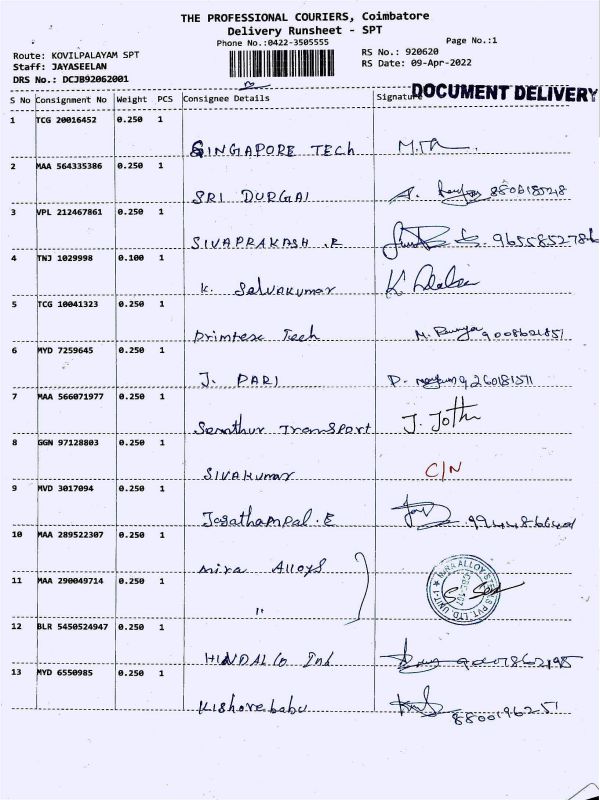 THE PROFESSIONAL COURIERS, Coimbatore
Delivery Runsheet - SPT
Phone No.:0422-3505555
Page No.:1
Route: KOVILPALAYAM SPT
RS No.: 920620
Staff: JAYASEELAN
RS Date: 09-Apr-2022
DRS No.: DCJB92062001
DOCUMENT DELIVERY
S No Consignment No Weight PCS Consignee Details Signature
1 TCG 20016452 0.250 1
SINGAPORE Tech
2 MAA 564335386 0.250 1
SRI DURGAI
3 VPL 212467861 0.250 1
SIVAPRAKASH .E 9655852786
4 TNJ 1029998 0.100 1
K. Selvakumar
5 TCG 10041323 0.250 1
Primtesc Tech
6 MYD 7259645 0.250 1
J. PARI
7 MAA 566071977 0.250 1
Senthur Transport J. Jothi
8 GGN 97128803 0.250 1
SIVAKUMAR C/N
9 MVD 3017094 0.250 1
Jagathampal.E
10 MAA 289522307 0.250 1
Mira Alloys
11 MAA 290049714 0.250 1
"
12 BLR 5450524947 0.250 1
HINDALCO Ind
13 MYD 6550985 0.250 1
Kishorebabu 8800196251